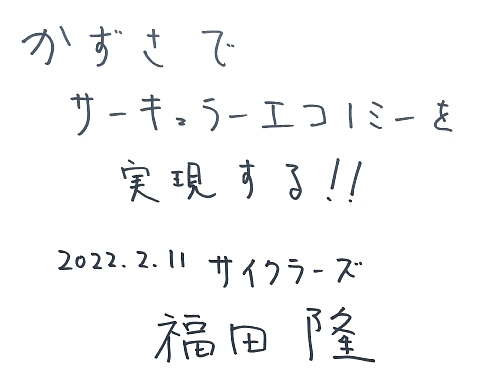 かずさで
サーキュラーエコノミーを
実現する!!
2022.2.11 サイクラーズ
福田 隆